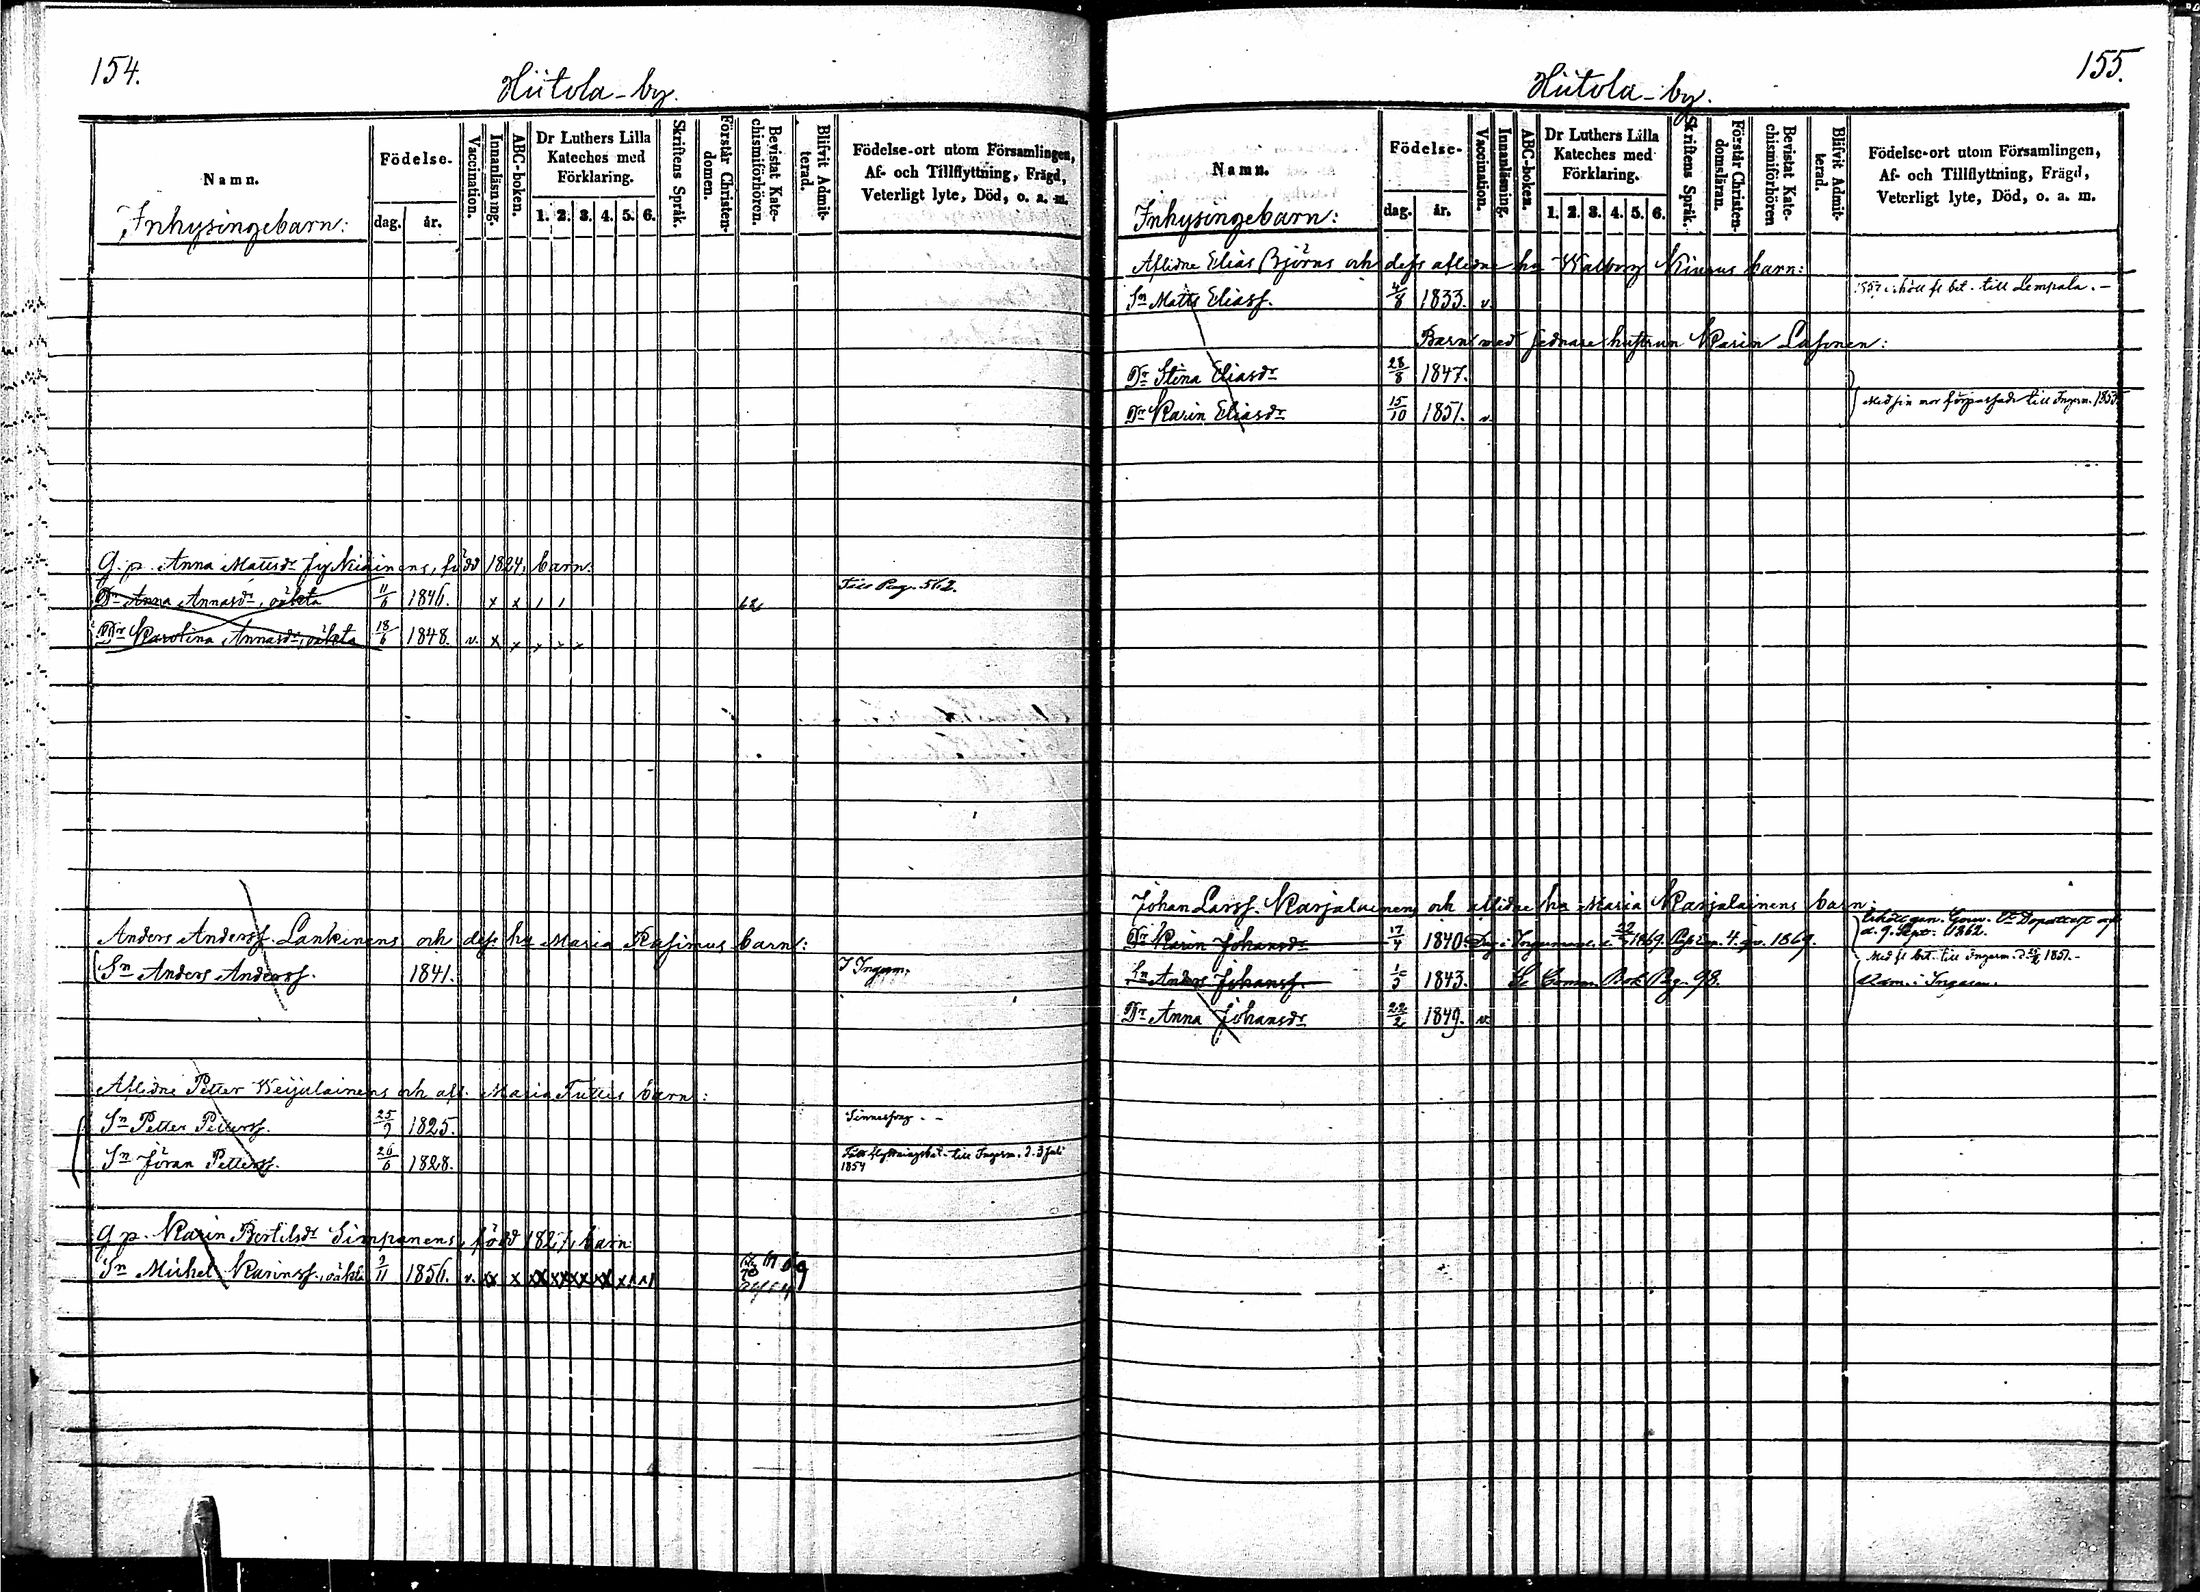 154.
Hiitola-by.
Namn.
Inhysingebarn:
Födelse-
dag. år.
Vaccination.
Innanläsning.
ABC-boken.
Dr Luthers Lilla
Kateches med
Förklaring.
1. 2. 3. 4. 5. 6.
Skriftens Språk.
Förstår Christen-
domen.
Bevistat Kate-
chismiförhören.
Blifvit Admit-
terad.
Födelse-ort utom Församlingen,
Af- och Tillflyttning, Frägd,
Veterligt lyte, Död, o. a. m.
G. p. Anna Mattsdr född 1824, barn:
Dr Anna Annasdr, oäkta 11/6 1846. x x / / 62 Till Pag. 562.
Dr Karolina Annasdr, oäkta 18/6 1848. v. x x x x x
Anders Anderss. Lankinens och dess hu Maria Rasimus barn:
Sn Anders Anderss. 1841. I Ingerm.
Aflidne Petter Weijalainens och afl. Maria Tuttis barn:
Sn Petter Petterss. 25/9 1825. Sinnessvag.-
Sn Jöran Petterss. 26/6 1828. Fått flyttningsbet. till Ingerm. d. 3 Juli
1854
G. p. Karin Bertilsdr Simpanens, född 1827, barn:
Sn Mickel Karinss., oäkta 2/11 1856. v. xx x xx xx xx xx x
155.
Hiitola-by.
Namn.
Inhysingebarn:
Födelse-
dag. år.
Vaccination.
Innanläsning.
ABC-boken.
Dr Luthers Lilla
Kateches med
Förklaring.
1. 2. 3. 4. 5. 6.
Skriftens Språk.
Förstår Christen-
domsläran.
Bevistat Kate-
chismiförhören
Blifvit Admit-
terad.
Födelse-ort utom Församlingen,
Af- och Tillflyttning, Frägd,
Veterligt lyte, Död, o. a. m.
Aflidne Elias Björns och dess aflidne hu Walborg Kiurus barn:
Sn Matts Eliass. 4/8 1833. v. 1857 erhöll fl. bet. till Lempala.-
Barn med sednare hustrun Karin Lasonen:
Dr Stina Eliasdr 28/8 1847.
Dr Karin Eliasdr 15/10 1851. v. Med sin mor förpassade till Ingerm.
Johan Larss. Karjalainens och aflidne hu Maria Karjalainens barn:
Dr Karin Johansdr 17/4 1840. 1869. 4. 1869. d. 9. Sept. 1862.
Sn Anders Johanss. 1/5 1843. Se Comm. Bok Pag. 98. Med fl. bet. till Ingerm. 1851.-
Dr Anna Johansdr 22/2 1849. v.